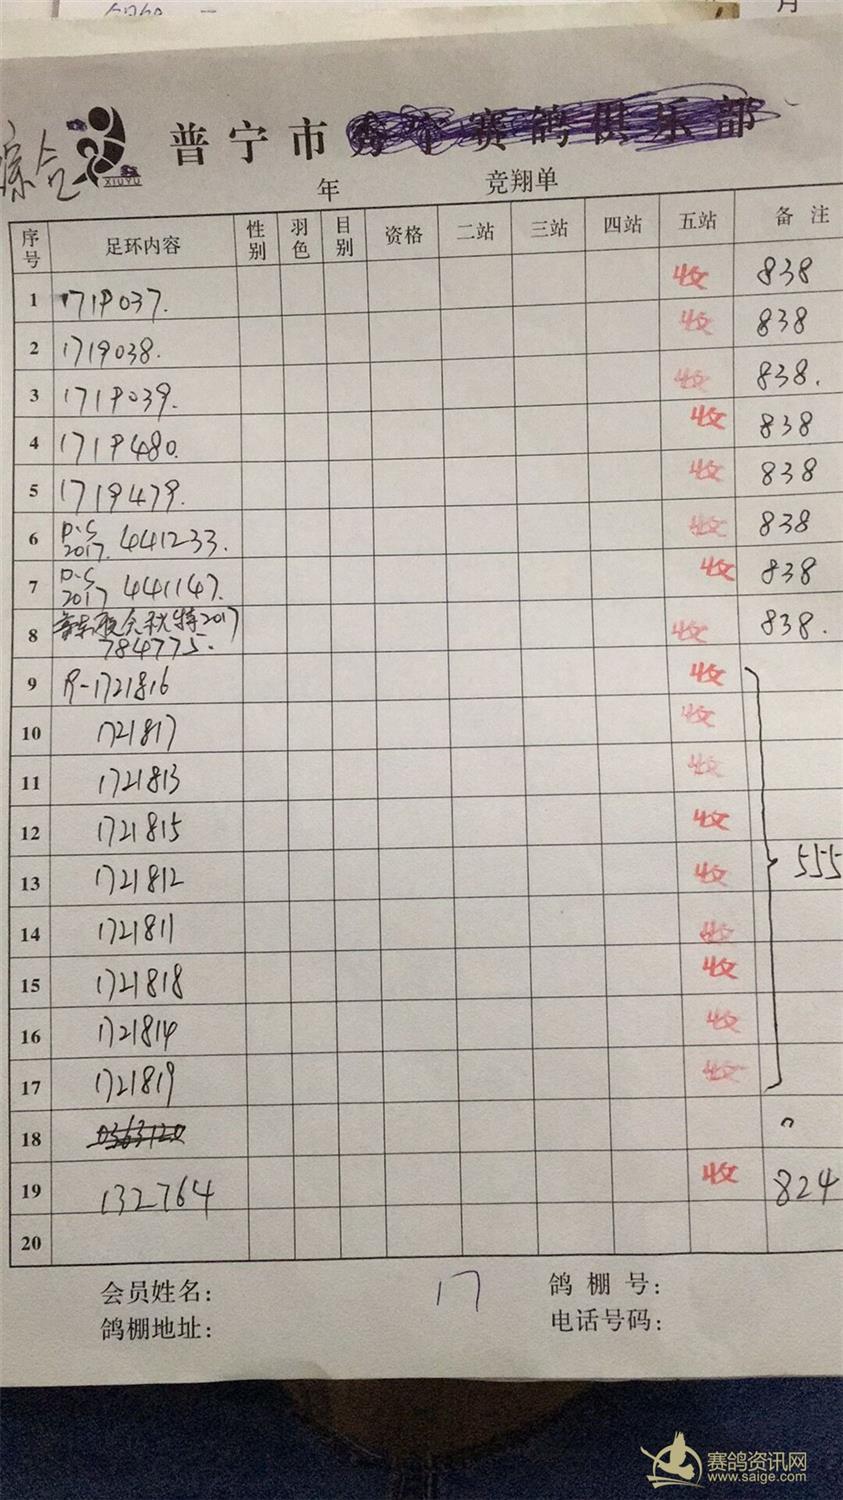 综合
XIUYU
普宁市赛鸽俱乐部
年 竞翔单
序号 足环内容 性别 羽色 目别 资格 二站 三站 四站 五站 备注
1 1719037. 收 838
2 1719038. 收 838
3 1719039. 收 838.
4 1719480. 收 838
5 1719479. 收 838
6 P.S 2017. 441233. 收 838
7 P.S 2017 441147. 收 838
8 2017 784775. 收 838.
9 P-1721816 收
10 1721817 收
11 1721813 收
12 1721815 收
13 1721812 收 555
14 1721811 收
15 1721818 收
16 1721814 收
17 1721819 收
18 0363120
19 132764 收 824
20
会员姓名: 17 鸽棚号:
鸽棚地址: 电话号码:
赛鸽资讯网
www.saige.com